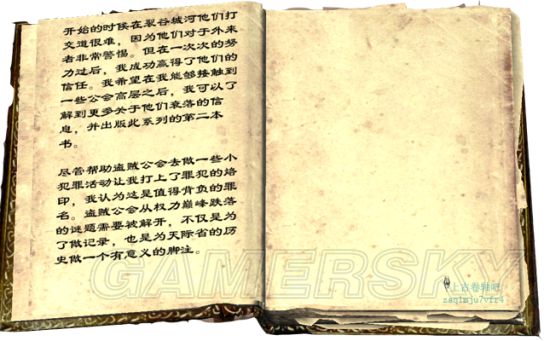 开始的时候在裂谷城河他们打
交道很难，因为他们对于外来
者非常警惕。但在一次次的努
力过后，我成功赢得了他们的
信任。我希望在我能够接触到
一些公会高层之后，我可以了
解到更多关于他们衰落的信
息，并出版此系列的第二本
书。
尽管帮助盗贼公会去做一些小
犯罪活动让我打上了罪犯的烙
印，我认为这是值得背负的罪
名。盗贼公会从权力巅峰跌落
的谜题需要被解开，不仅是为
了做记录，也是为天际省的历
史做一个有意义的脚注。
GAMERSKY
上古卷轴吧
zaq1mju7vfr4